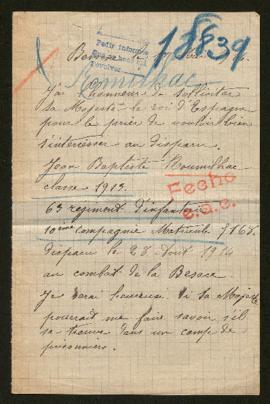 18839
Roumilhac
J'ai l'honneur de solliciter
sa Majesté le roi d'Espagne
pour le prier de vouloir bien
s'intéresser au disparu.
Jean Baptiste Roumilhac
classe 1913.
Fecho
63 regiment d'infanterie
10eme compagnie Matricule 7168
disparu le 28 Aout 1914
au combat de la Besace
Je serai heureux si sa Majesté
pourrait me faire savoir s'il
se trouve dans un camp de
prisonniers.